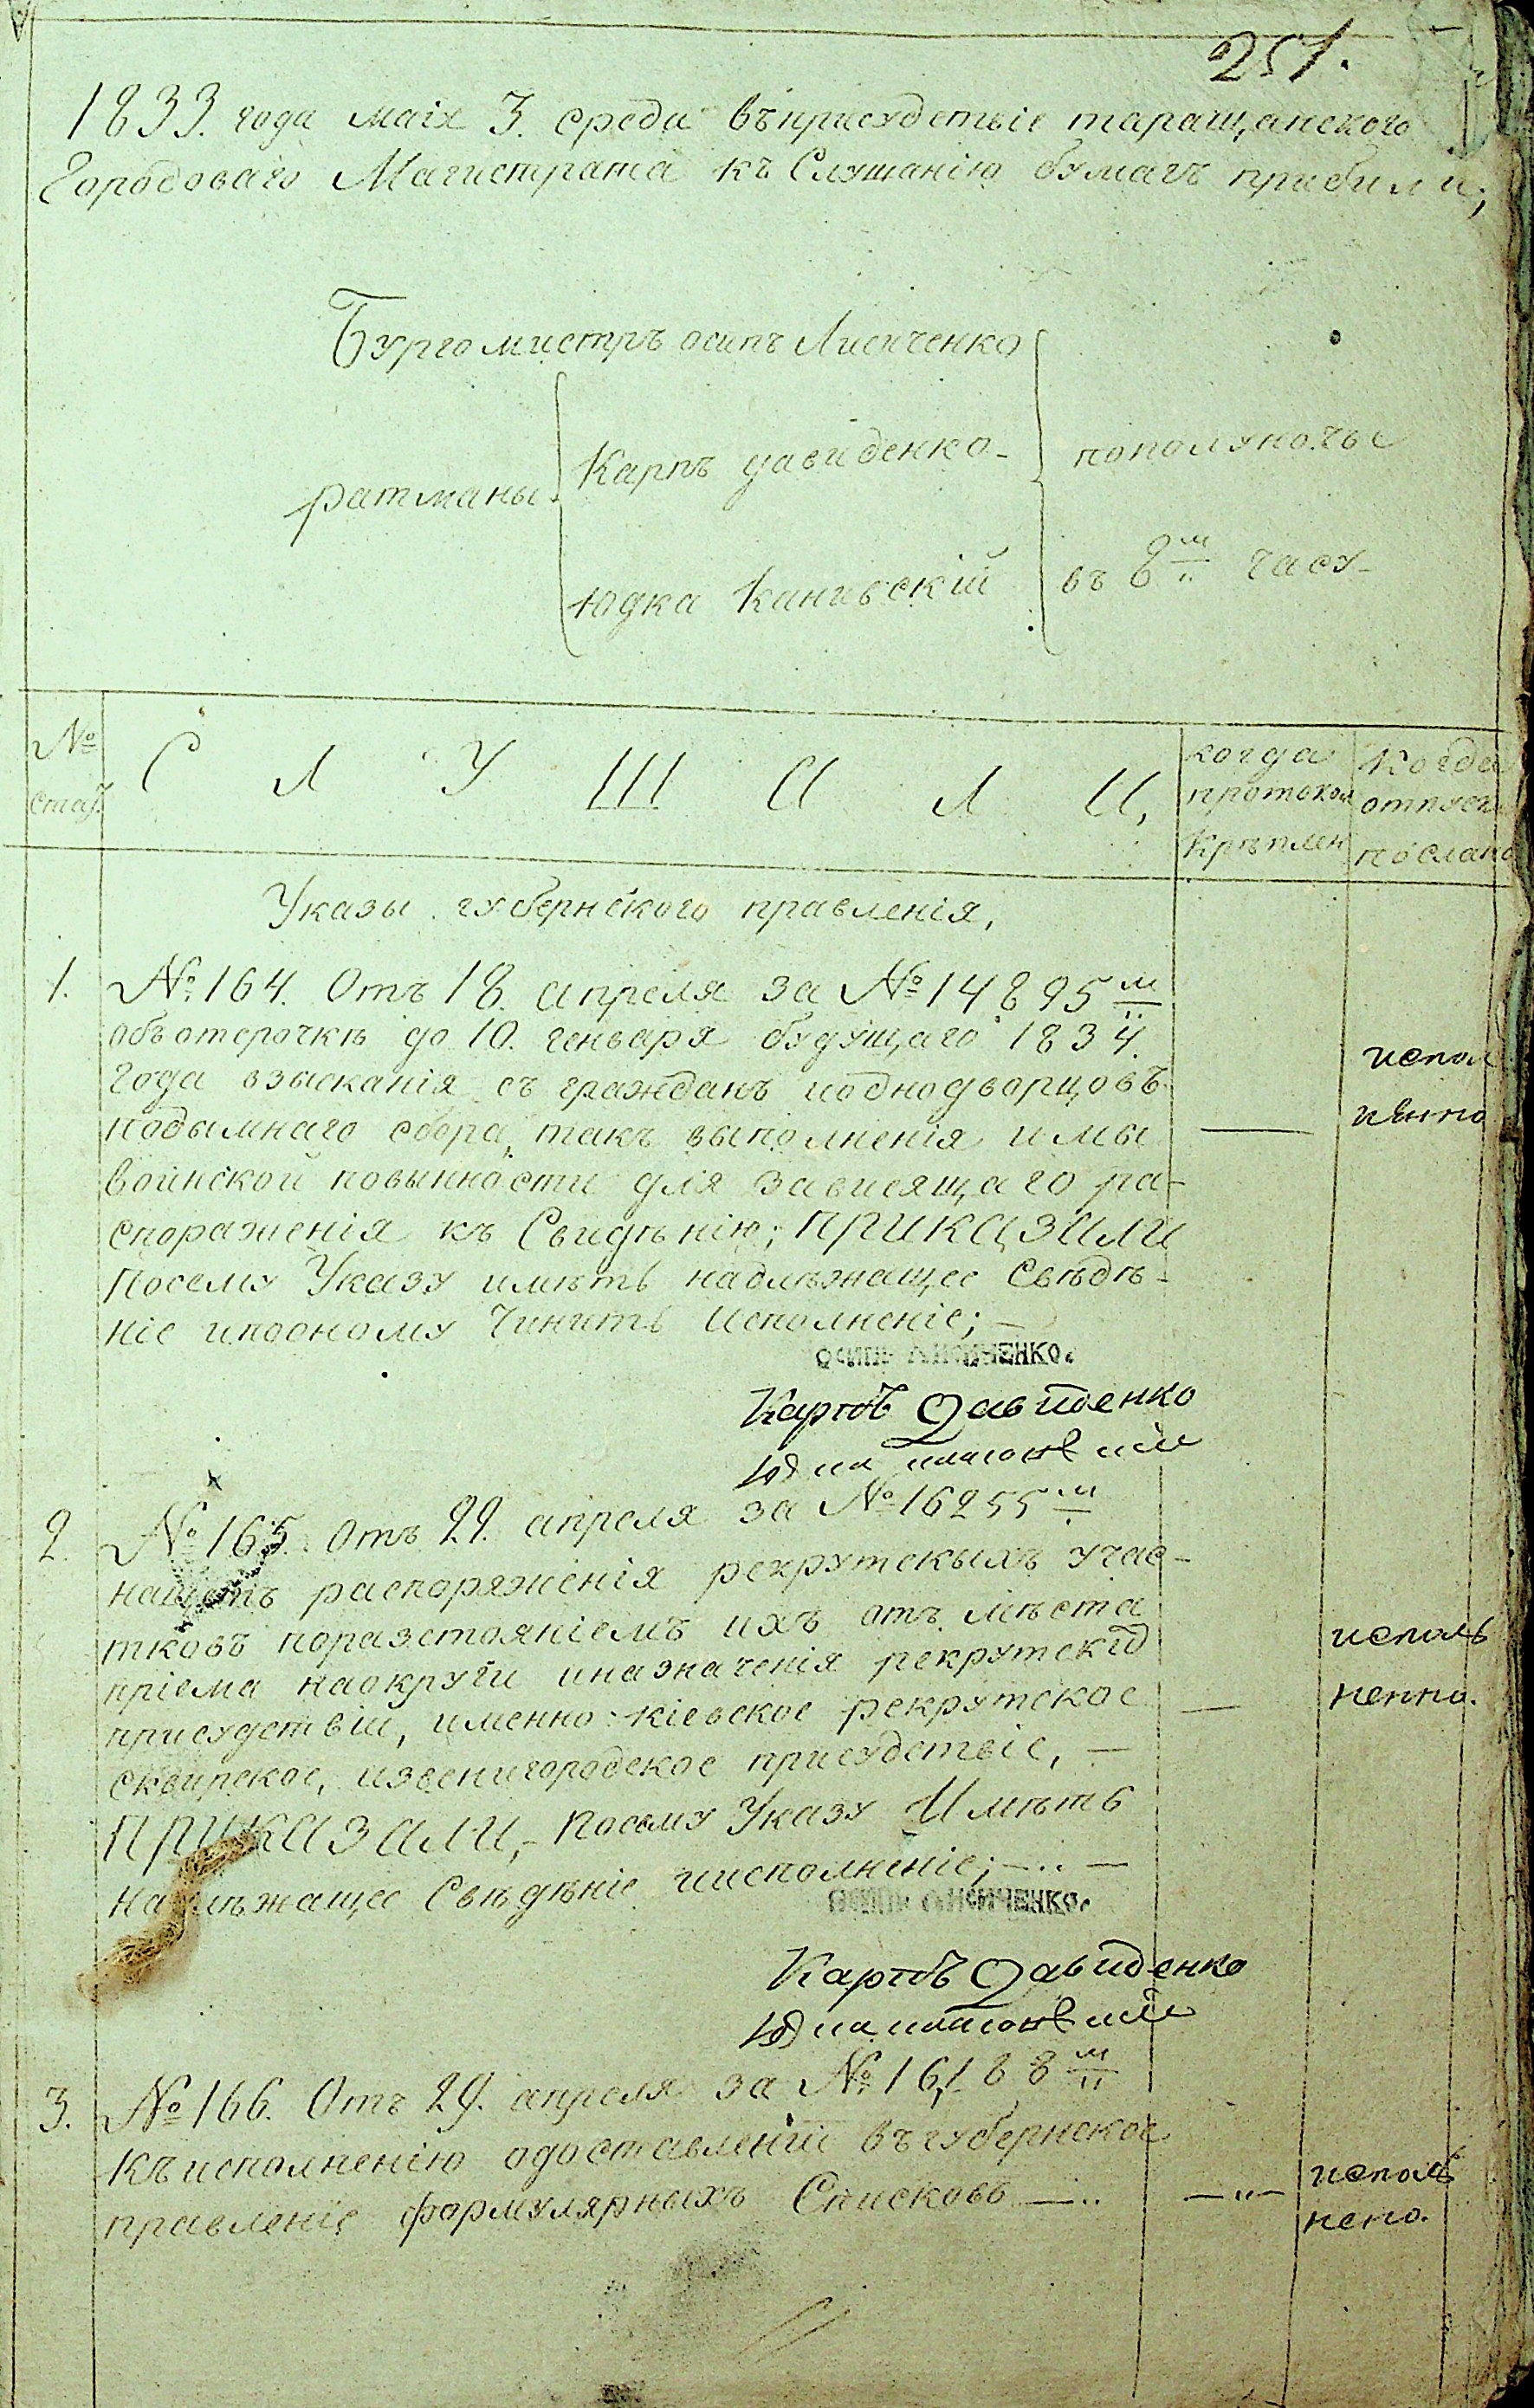 251.
1833. года маія 3. среда въ присудствіе таращанского
Городоваго Магистрата къ Слушанію бумагъ прибили;
Бургомистръ осипъ Лисиченко
ратманы
Карпъ давиденко
пополуночье
Юдка Канивскій
въ 8 м часу
№
стат.
С Л У Ш И Л И,
когда
протокол
Крѣплен
Когда
отпуск
послано
Указы губернского правленія,
1. № 164. Отъ 18. апреля за № 14895 м
объ отсрочкѣ до 10. Генваря будущаго 1834.
Года взысканія съ гражданъ иоднодворцовъ
подымнаго сбора, такъ выполненія имы
воинской повынности для зависящаго ра-
споряженія къ Свидѣнію; ПРИКАЗАЛИ
Посему Указу имѣть надлѣжащее Свѣдѣ-
ніе ипооному Чинить Исполненіе;
испол
нѣнно
ОСИПЪ ЛИСИЧЕНКО.
Карпъ Давиденко
2. № 165. Отъ 22. апреля за № 16255 м
насчетъ распоряженія рекрутскыхъ учас-
тковъ поразстояніемъ ихъ отъ мѣста
пріема наокруги иназначенія рекрутскій
присудствій, именно: кіевское рекрутское
сквирское, извенигородское присудствіе,
ПРИКАЗАЛИ, Посему Указу Имѣть
надлѣжащее Свѣдѣніе иисполненіе;
исполь
ненно.
ОСИПЪ ЛИСИЧЕНКО.
Карпъ Давиденко
3. № 166. Отъ 29. апреля за № 16188 м
Къ исполненію одоставленіи въ губернское
правленіе формулярныхъ Списковъ
исполь
нено.